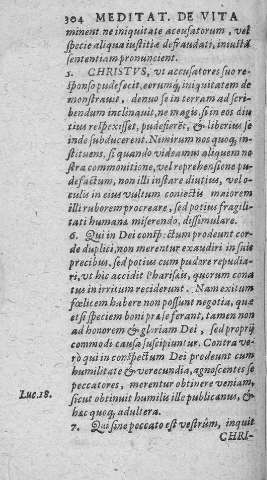 304 MEDITAT. DE VITA
minent ne iniquitate accusatorum, vel
specie aliqua iustitiæ defraudati, iniustā
sententiam pronuncient.
5. CHRISTVS, vt accusatores suo re-
sponso pudefecit, eorumq; iniquitatem de
monstrauit, denuo se in terram ad scri-
bendum inclinauit, ne magis, si in eos diu
tius respexisset, pudefieret, & liberius se
inde subducerent. Nemirum nos quoq; in-
stituens, si quando videamus aliquem no
stra commonitione, vel reprehensione pu-
defactum, non illi instare diutius, vel o-
culis in eius vultum coniectis maiorem
illi ruborem procreare, sed potius fragili-
tati humanæ miserendo, dissimulare.
6. Qui in Dei conspectum prodeunt cor-
de duplici, non merentur exaudiri in suis
precibus, sed potius cum pudore repudia-
ri, vt hic accidit Pharisæis, quorum cona
tus in irritum reciderunt. Nam exitum
fœlicem habere non possunt negotia, quæ
et si speciem boni præ se ferant, tamen non
ad honorem & gloriam Dei, sed proprij
commodi causa suscipiuntur. Contra ve-
rò qui in conspectum Dei prodeunt cum
humilitate & verecundia, agnoscentes se
peccatores, merentur obtinere veniam,
Luc. 18. sicut obtinuit humilis ille publicanus, &
hæc quoq; adultera.
7. Qui sine peccato est vestrûm, inquit
CHRI-